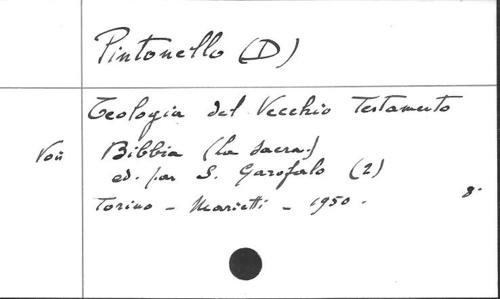 Pintonello (D)
Teologia del Vecchio Testamento
Voir Bibbia (La Sacra)
ed. par S. Garofalo (2)
Torino - Marietti - 1950. 8°